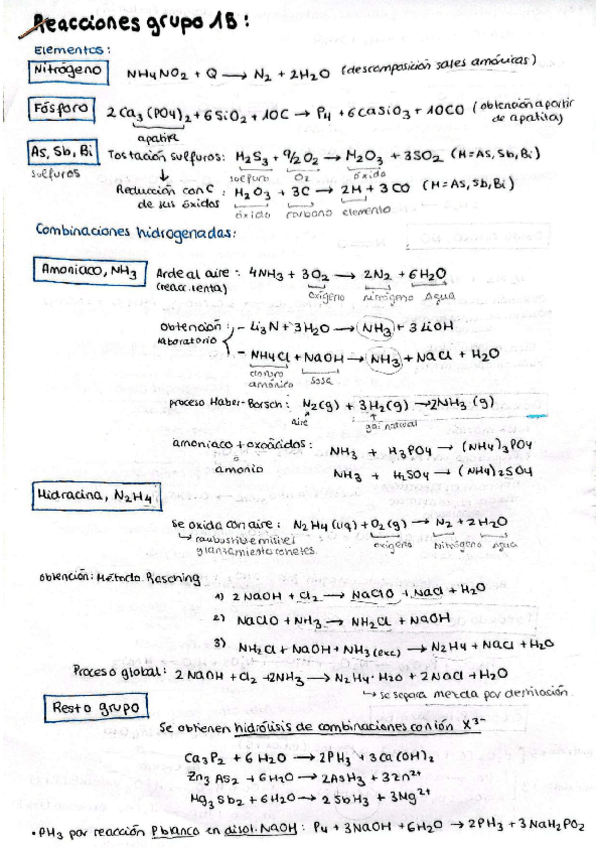 Reacciones grupo 15:
Elementos:
Nitrógeno NH4NO2 + Q → N2 + 2H2O (descomposición sales amónicas)
Fósforo 2Ca3(PO4)2 + 6SiO2 + 10C → P4 + 6CaSiO3 + 10CO (obtención a partir de apatita)
apatita
As, Sb, Bi Tostación sulfuros: M2S3 + 9/2O2 → M2O3 + 3SO2 (M=As, Sb, Bi)
sulfuros sulfuro O2 óxido
Reducción con C de sus óxidos : M2O3 + 3C → 2M + 3CO (M=As, Sb, Bi)
óxido carbono elemento
Combinaciones hidrogenadas:
Amoniaco, NH3 Arde al aire: 4NH3 + 3O2 → 2N2 + 6H2O
(reacc. lenta) oxígeno nitrógeno agua
obtención laboratorio: - Li3N + 3H2O → NH3 + 3LiOH
- NH4Cl + NaOH → NH3 + NaCl + H2O
cloruro amónico sosa
proceso Haber-Borsch: N2(g) + 3H2(g) → 2NH3(g)
aire gas natural
amoniaco + oxoácidos: NH3 + H3PO4 → (NH4)3PO4
amonio NH3 + H2SO4 → (NH4)2SO4
Hidracina, N2H4
Se oxida con aire: N2H4(liq) + O2(g) → N2 + 2H2O
combustive militer y lanzamiento cohetes. oxígeno Nitrógeno agua
obtención: Método Rasching
1) 2NaOH + Cl2 → NaClO + NaCl + H2O
2) NaClO + NH3 → NH2Cl + NaOH
3) NH2Cl + NaOH + NH3(exc) → N2H4 + NaCl + H2O
Proceso global: 2NaOH + Cl2 + 2NH3 → N2H4·H2O + 2NaCl + H2O
→ se separa mezcla por destilación.
Resto grupo
Se obtienen hidrólisis de combinaciones con ión X3-
Ca3P2 + 6H2O → 2PH3 + 3Ca(OH)2
Zn3As2 + 6H2O → 2AsH3 + 3Zn2+
Mg3Sb2 + 6H2O → 2SbH3 + 3Mg2+
• PH3 por reacción P blanco en disol. NaOH: P4 + 3NaOH + 6H2O → 2PH3 + 3NaH2PO2